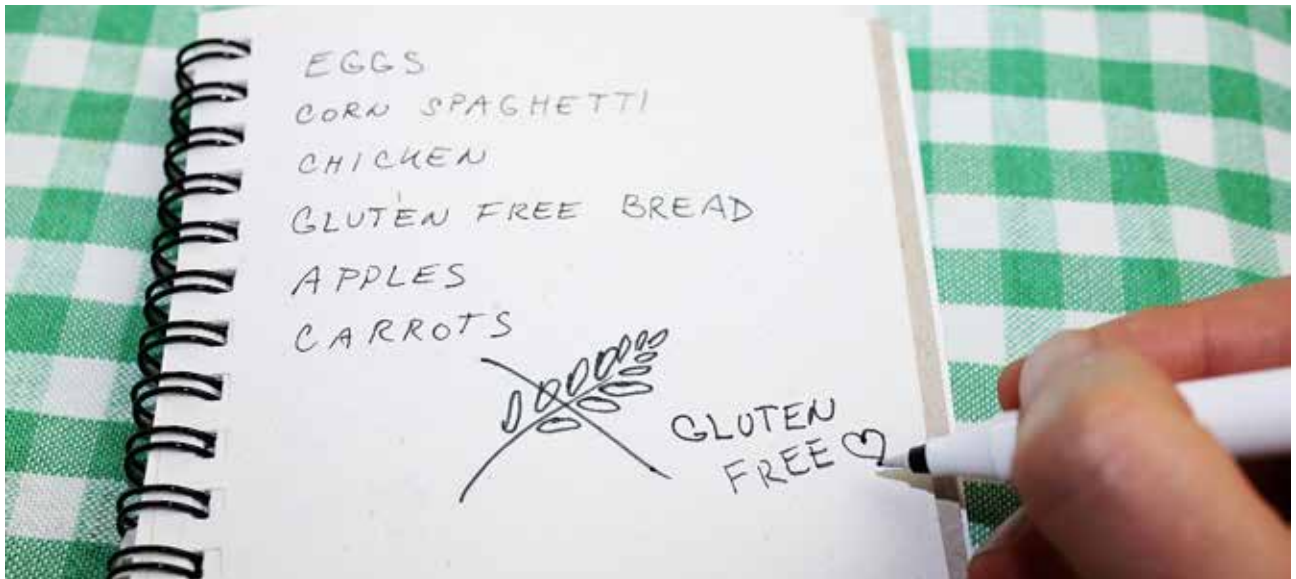 EGGS
CORN SPAGHETTI
CHICKEN
GLUTEN FREE BREAD
APPLES
CARROTS
GLUTEN
FREE♡